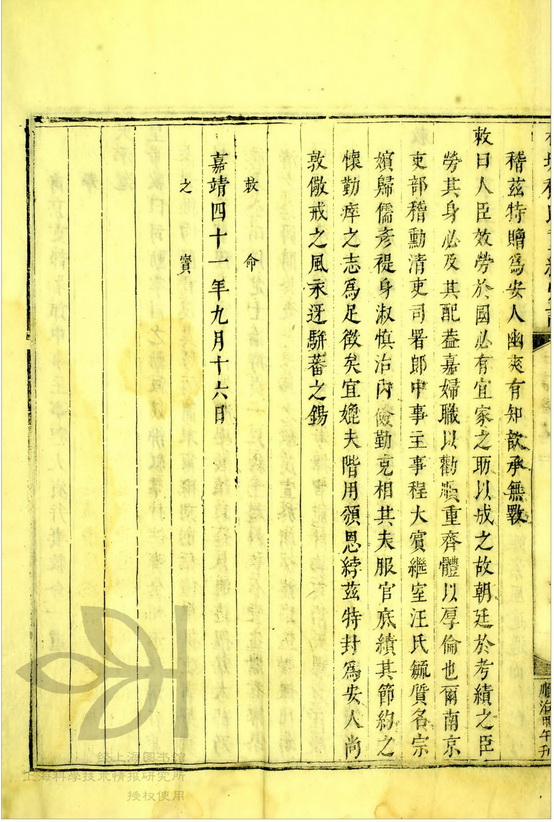 稽茲特贈爲安人幽爽有知歆承無斁
敕曰人臣效勞於國必有宜家之助以成之故朝廷於考績之臣
勞其身必及其配葢嘉婦職以勸順重齊體以厚倫也爾南京
吏部稽勳清吏司署郎中事主事程大賓繼室汪氏毓質名宗
嬪歸儒彥禔身淑慎治內儉勤克相其夫服官底績其節約之
懷勤瘁之志爲足徵矣宜媲夫階用頒恩綍茲特封爲安人尚
敦儆戒之風永迓駢蕃之錫
敕命
嘉靖四十一年九月十六日
之寶
順治甲午刊
上海圖書館
上海科學技術情報研究所
授權使用